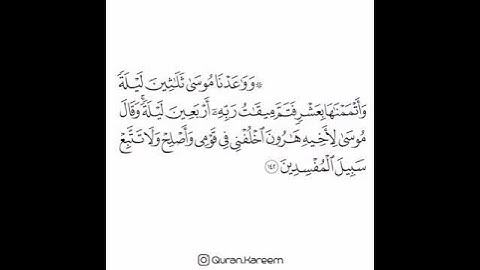 ۞ وَوَٰعَدۡنَا مُوسَىٰ ثَلَٰثِينَ لَيۡلَةٗ
وَأَتۡمَمۡنَٰهَا بِعَشۡرٖ فَتَمَّ مِيقَٰتُ رَبِّهِۦٓ أَرۡبَعِينَ لَيۡلَةٗۚ وَقَالَ
مُوسَىٰ لِأَخِيهِ هَٰرُونَ ٱخۡلُفۡنِي فِي قَوۡمِي وَأَصۡلِحۡ وَلَا تَتَّبِعۡ
سَبِيلَ ٱلۡمُفۡسِدِينَ ١٤٢
Quran.Kareem